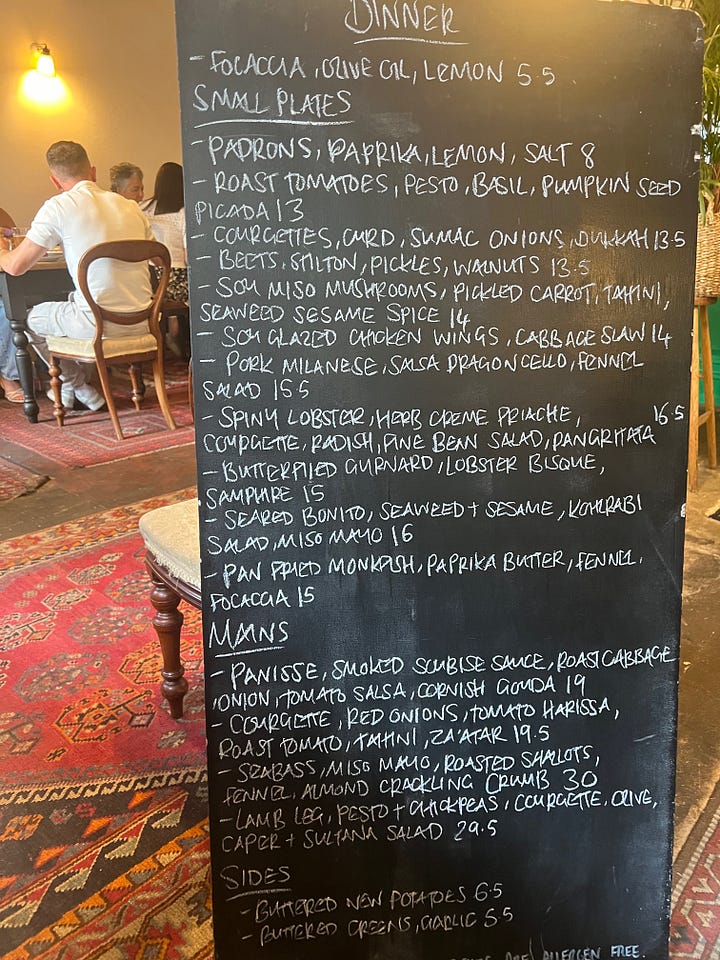 DINNER
- FOCACCIA, OLIVE OIL, LEMON 5.5
SMALL PLATES
- PADRONS, PAPRIKA, LEMON, SALT 8
- ROAST TOMATOES, PESTO, BASIL, PUMPKIN SEED
PICADA 13
- COURGETTES, CURD, SUMAC ONIONS, DUKKAH 13.5
- BEETS, STILTON, PICKLES, WALNUTS 13.5
- SOY MISO MUSHROOMS, PICKLED CARROT, TAHINI,
SEAWEED SESAME SPICE 14
- SOY GLAZED CHICKEN WINGS, CABBAGE SLAW 14
- PORK MILANESE, SALSA DRAGONCELLO, FENNEL
SALAD 15.5
- SPINY LOBSTER, HERB CREME FRIACHE, 16.5
COURGETTE, RADISH, FINE BEAN SALAD, PANGRITATA
- BUTTERFLIED GURNARD, LOBSTER BISQUE,
SAMPHIRE 15
- SEARED BONITO, SEAWEED + SESAME, KOHLRABI
SALAD, MISO MAYO 16
- PAN FRIED MONKFISH, PAPRIKA BUTTER, FENNEL,
FOCACCIA 15
MAINS
- PANISSE, SMOKED SOUBISE SAUCE, ROAST CABBAGE
ONION, TOMATO SALSA, CORNISH GOUDA 19
- COURGETTE, RED ONIONS, TOMATO HARISSA,
ROAST TOMATO, TAHINI, ZA'ATAR 19.5
- SEABASS, MISO MAYO, ROASTED SHALOTS,
FENNEL, ALMOND CRACKLING CRUMB 30
- LAMB LEG, PESTO + CHICKPEAS, COURGETTE, OLIVE,
CAPER + SULTANA SALAD 29.5
SIDES
- BUTTERED NEW POTATOES 6.5
- BUTTERED GREENS, GARLIC 5.5
ALLERGEN FREE.